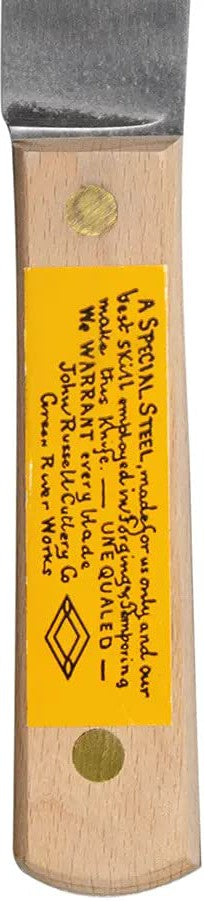 A SPECIAL STEEL, made for us only and our
best skill employed in forging & Tempering
make this Knife. — UNEQUALED —
We WARRANT every blade
John Russell Cutlery Co
Green River Works